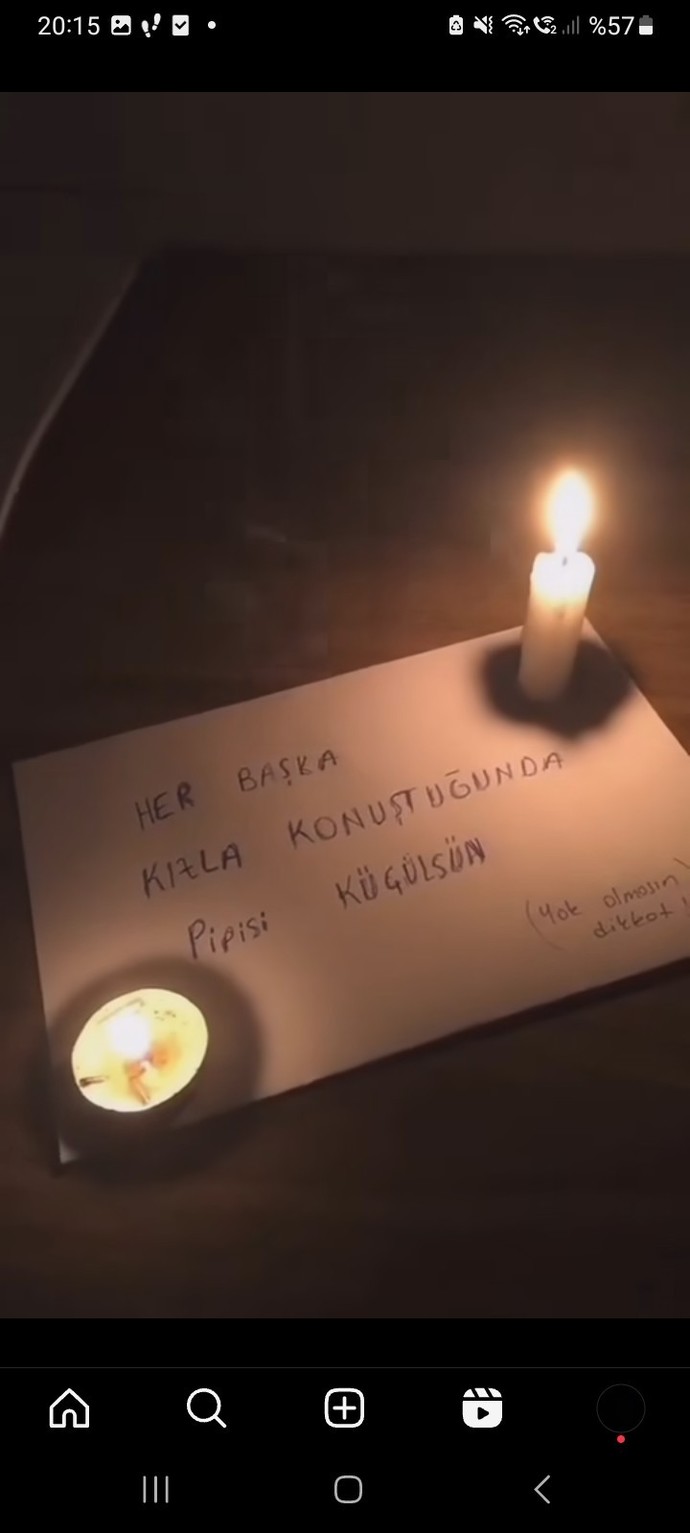 20:15
%57
HER BAŞKA
KIZLA KONUŞTUĞUNDA
PİPİSİ KÜÇÜLSÜN
(Yok olmasın
dikkat!